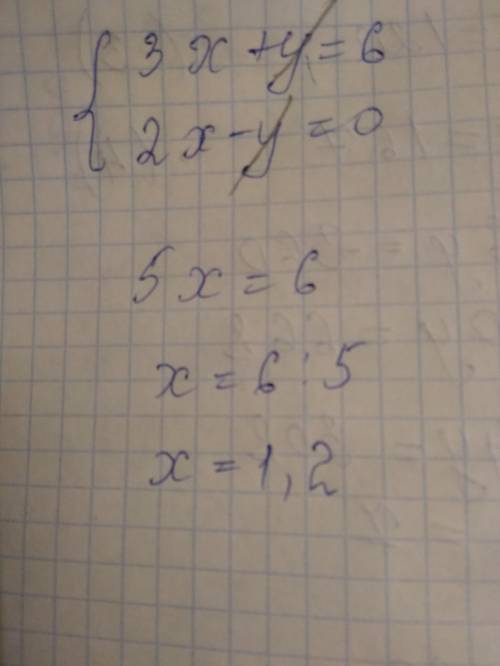 3x+y=6
2x-y=0
5x=6
x=6:5
x=1,2